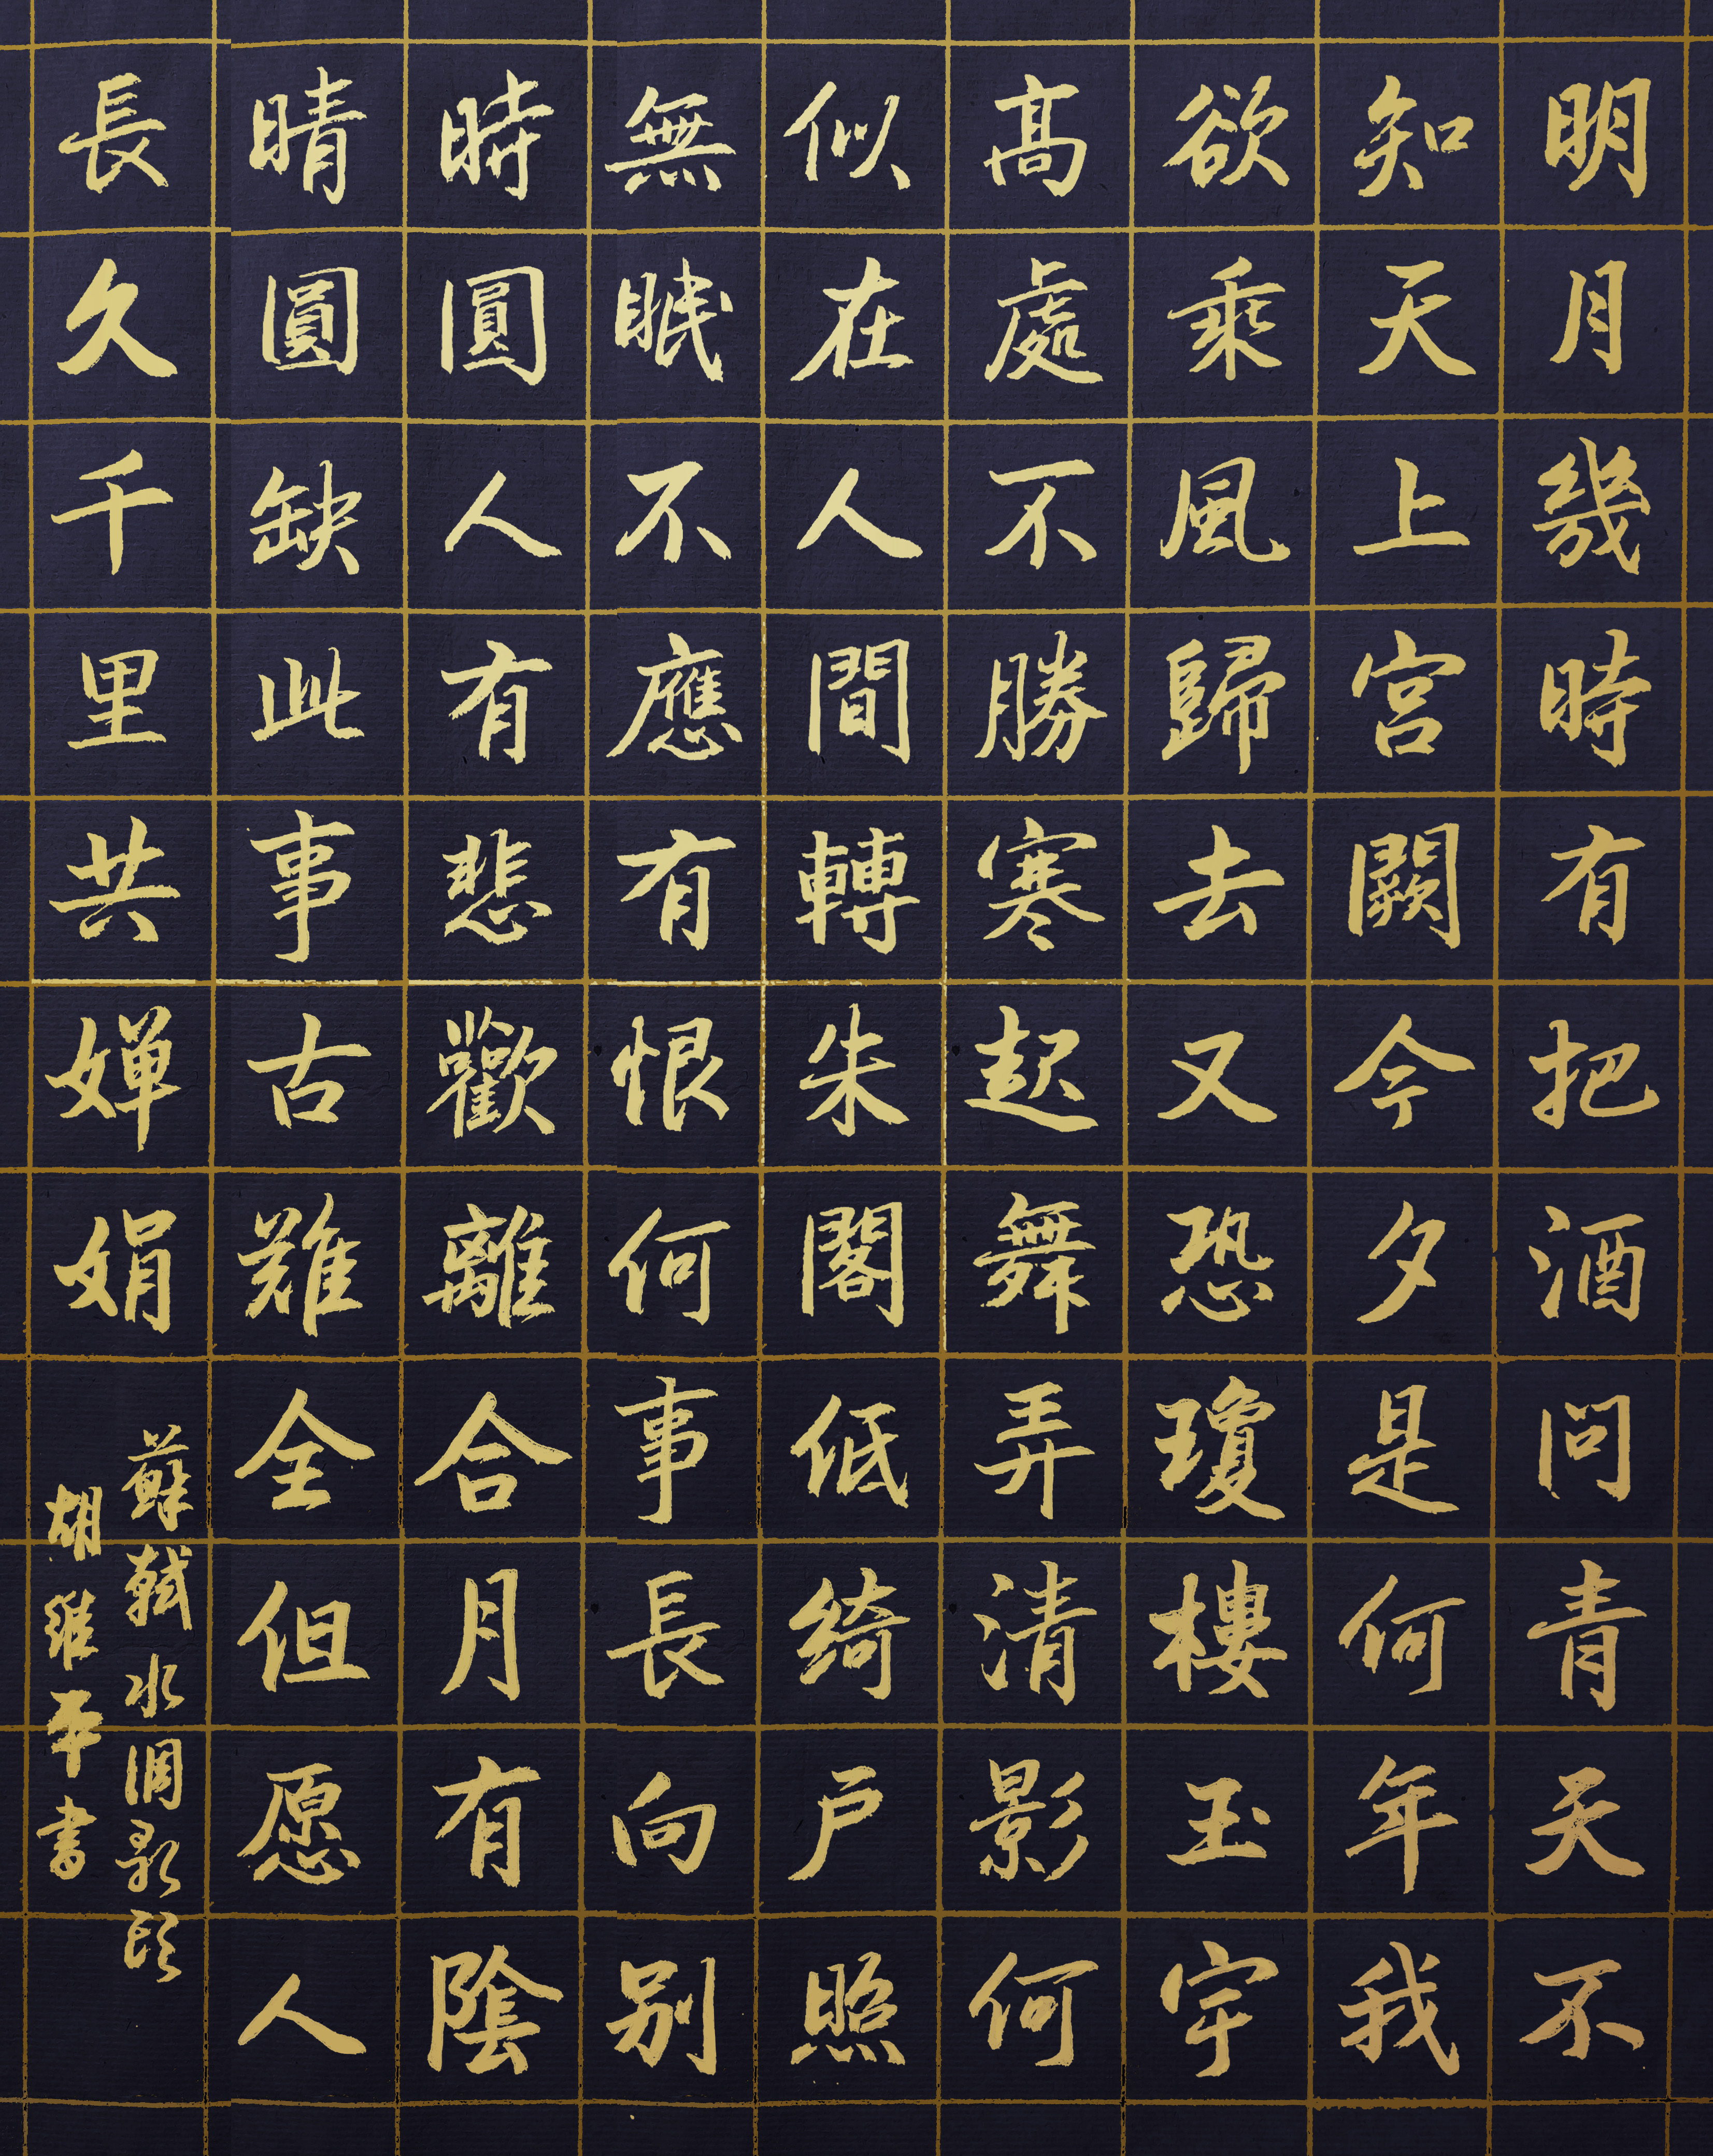 明月幾時有把酒问青天不
知天上宫闕今夕是何年我
欲乘風歸去又恐瓊樓玉宇
髙處不勝寒起舞弄清影何
似在人間轉朱閣低綺户照
無眠不應有恨何事長向别
時圓人有悲歡離合月有陰
晴圓缺此事古難全但愿人
長久千里共婵娟
蘇軾水調歌頭
胡維平書